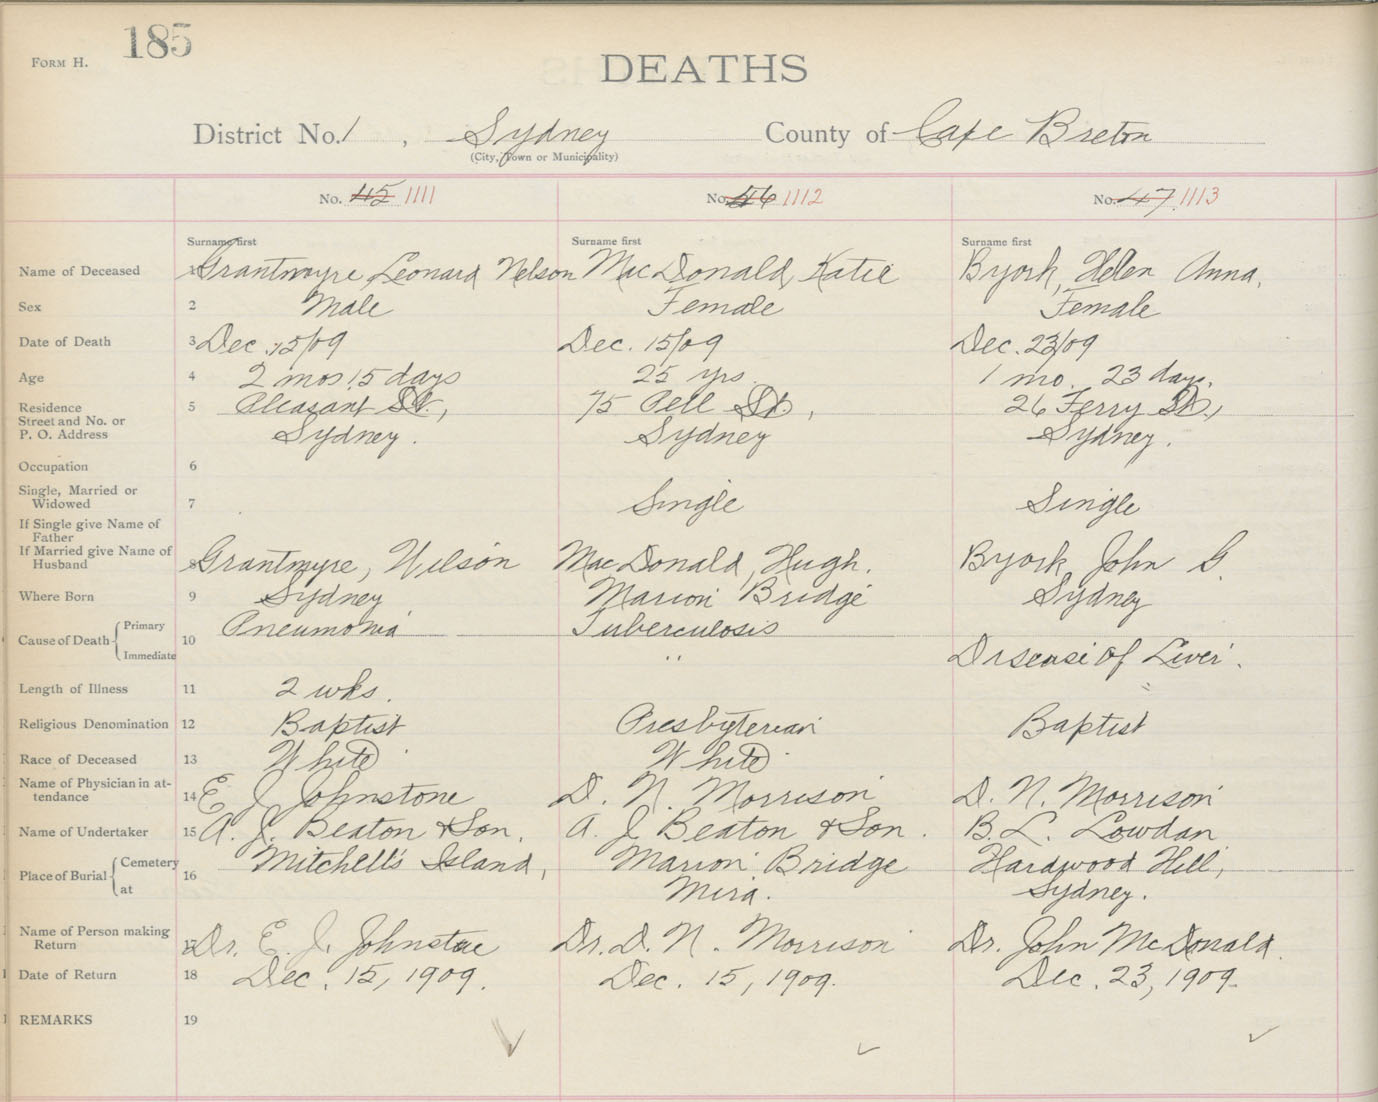 FORM H. 185
DEATHS
District No. 1, Sydney County of Cape Breton
(City, Town or Municipality)
No. 45 1111 No. 46 1112 No. 47 1113
Surname first Surname first Surname first
Name of Deceased 1 Grantmyre Leonard Nelson MacDonald, Katie Byork, Helen Anna,
Sex 2 Male Female Female
Date of Death 3 Dec. 15/09 Dec. 15/09 Dec. 23/09
Age 4 2 mos 15 days 25 yrs. 1 mo. 23 days.
Residence 5 Pleasant St., 75 Pell St., 26 Ferry St.,
Street and No. or
P. O. Address Sydney. Sydney Sydney.
Occupation 6
Single, Married or
Widowed 7 Single Single
If Single give Name of
Father
If Married give Name of
Husband 8 Grantmyre, Wilson MacDonald, Hugh. Byork, John G.
Where Born 9 Sydney Marion Bridge Sydney
Primary Pneumonia Tuberculosis
Cause of Death 10
Immediate " Disease of Liver.
Length of Illness 11 2 wks. "
Religious Denomination 12 Baptist Presbyterian Baptist
Race of Deceased 13 White White
Name of Physician in at-
tendance 14 E J Johnstone D. N. Morrison D. N. Morrison
Name of Undertaker 15 A. J. Beaton & Son. A. J Beaton & Son. B. L. Lowdan
Cemetery Mitchell's Island, Marion Bridge Hardwood Hill,
Place of Burial 16
at Mira. Sydney.
Name of Person making
Return 17 Dr. E. J. Johnstone Dr. D. N. Morrison Dr. John McDonald.
Date of Return 18 Dec. 15, 1909. Dec. 15, 1909. Dec. 23, 1909.
REMARKS 19